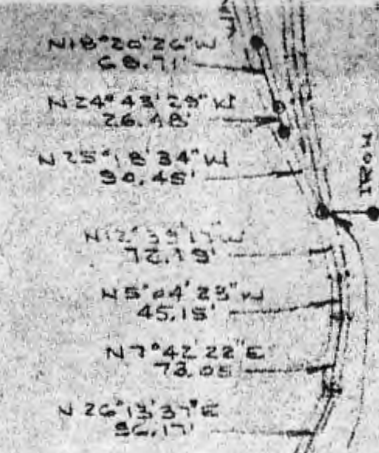 N18°20'26"W
68.71'
N24°43'29"W
26.48'
N25°18'34"W
90.45'
N12°39'17"W
72.79'
N5°04'23"W
45.15'
N7°42'22"E
73.05
N26°13'37"E
96.17'
IRON